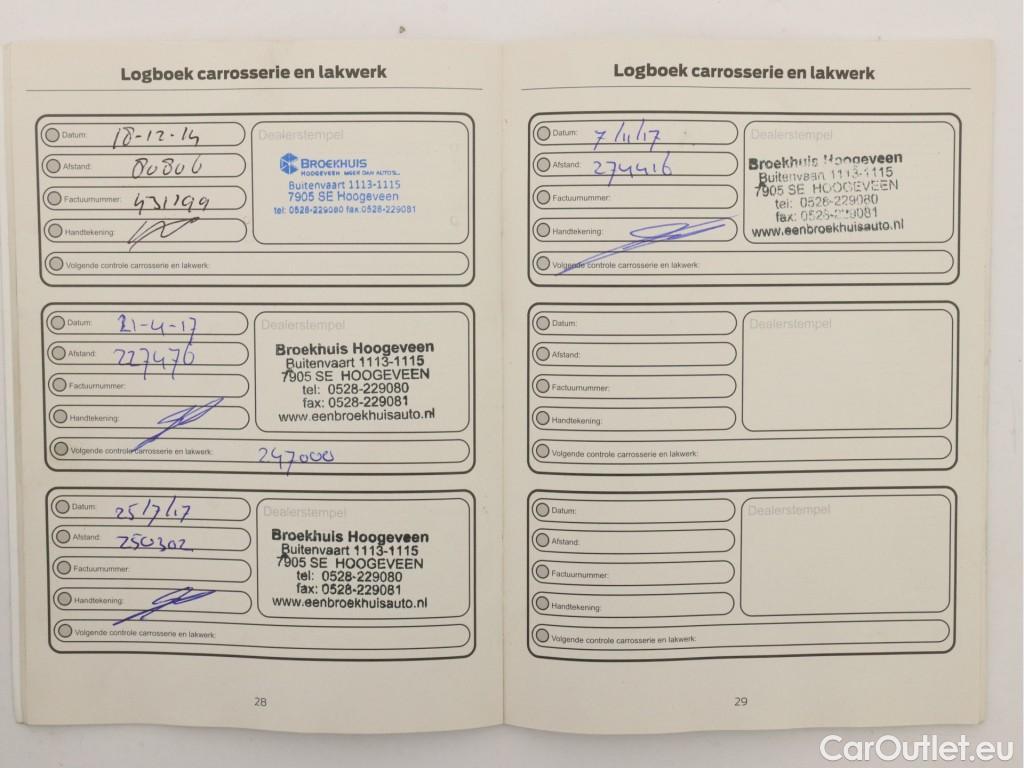 Logboek carrosserie en lakwerk
Datum: 18-12-14
Afstand: 80806
Factuurnummer: 431299
Handtekening:
Volgende controle carrosserie en lakwerk:
Dealerstempel
BROEKHUIS
HOOGEVEEN MEER DAN AUTO'S...
Buitenvaart 1113-1115
7905 SE Hoogeveen
tel: 0528-229080 fax:0528-229081
Datum: 21-4-17
Afstand: 227476
Factuurnummer:
Handtekening:
Volgende controle carrosserie en lakwerk: 247000
Dealerstempel
Broekhuis Hoogeveen
Buitenvaart 1113-1115
7905 SE HOOGEVEEN
tel: 0528-229080
fax: 0528-229081
www.eenbroekhuisauto.nl
Datum: 25/7/17
Afstand: 250302
Factuurnummer:
Handtekening:
Volgende controle carrosserie en lakwerk:
Dealerstempel
Broekhuis Hoogeveen
Buitenvaart 1113-1115
7905 SE HOOGEVEEN
tel: 0528-229080
fax: 0528-229081
www.eenbroekhuisauto.nl
28
Logboek carrosserie en lakwerk
Datum: 7/11/17
Afstand: 274416
Factuurnummer:
Handtekening:
Volgende controle carrosserie en lakwerk:
Dealerstempel
Broekhuis Hoogeveen
Buitenvaart 1113-1115
7905 SE HOOGEVEEN
tel: 0528-229080
fax: 0528-229081
www.eenbroekhuisauto.nl
Datum:
Afstand:
Factuurnummer:
Handtekening:
Volgende controle carrosserie en lakwerk:
Dealerstempel
Datum:
Afstand:
Factuurnummer:
Handtekening:
Volgende controle carrosserie en lakwerk:
Dealerstempel
29
CarOutlet.eu